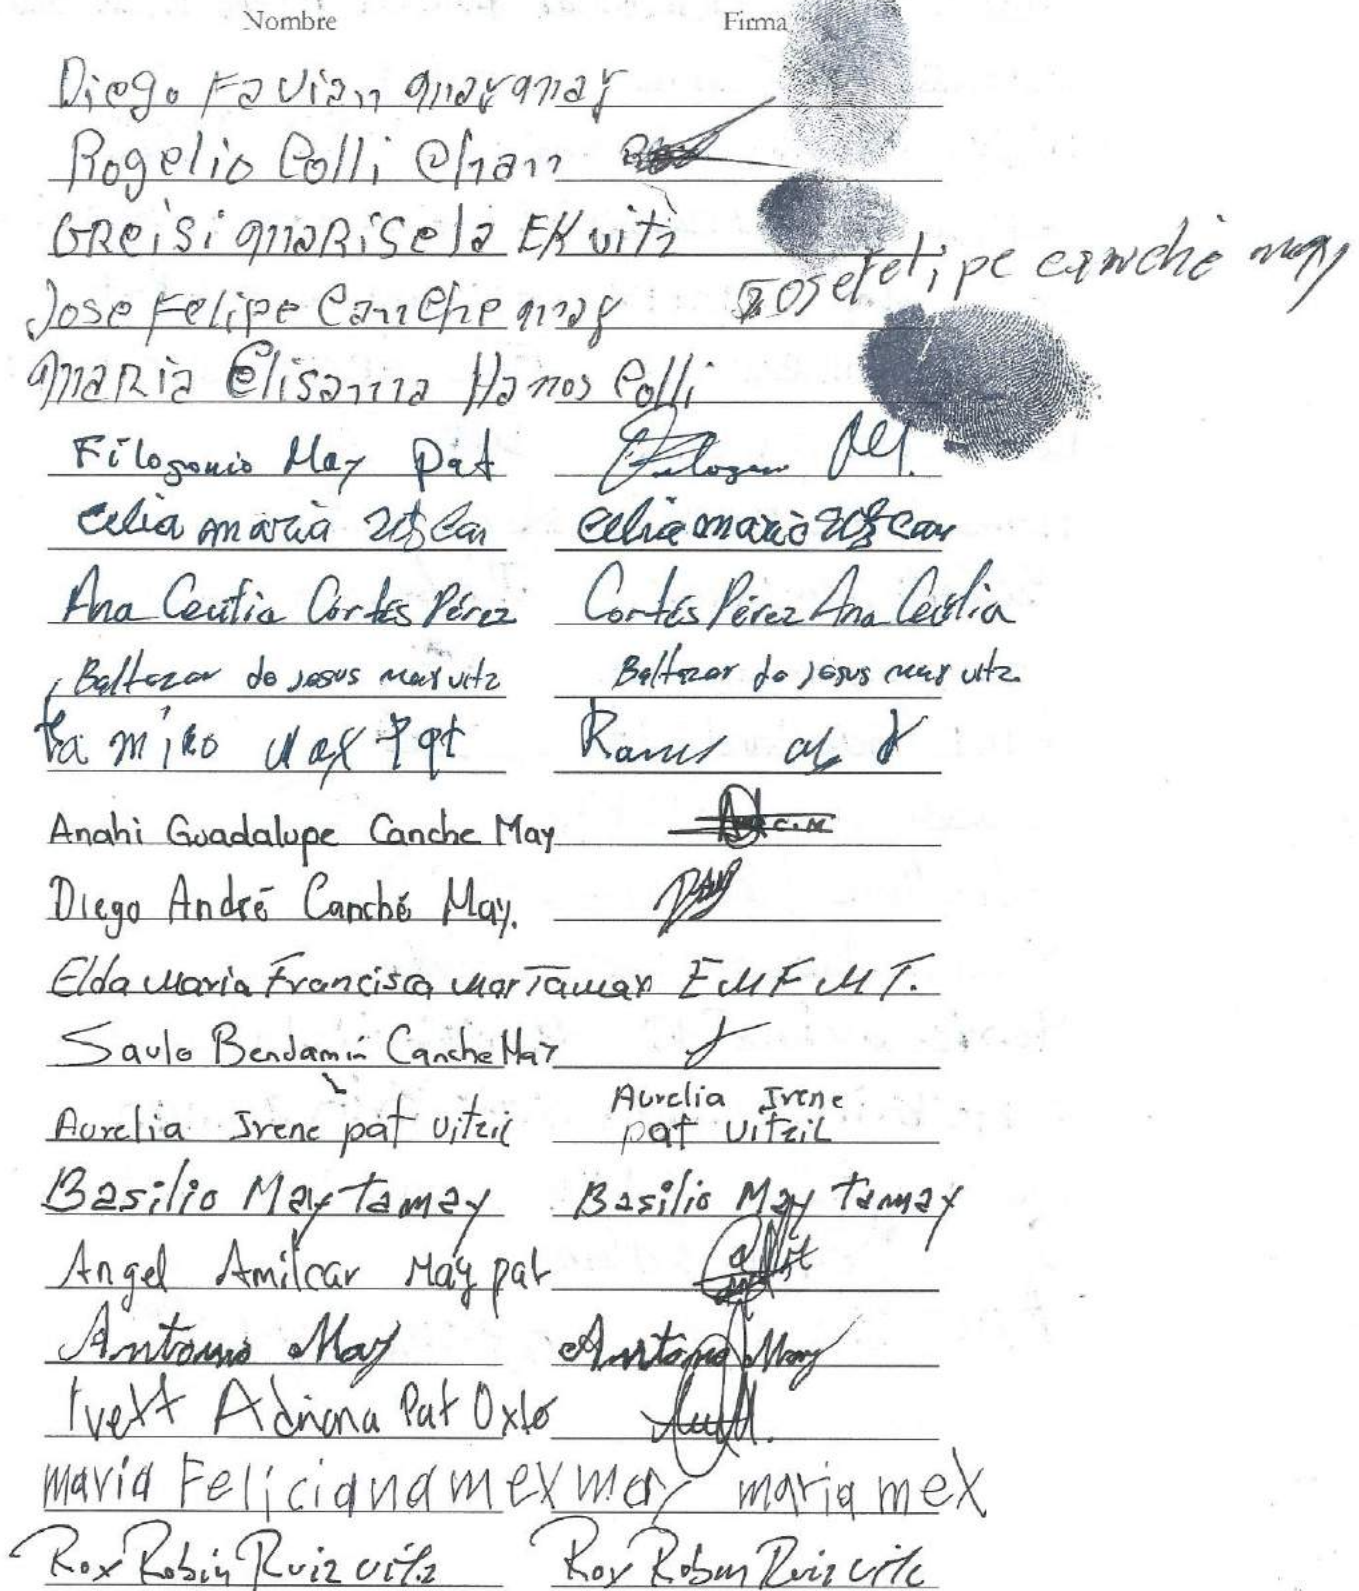 Nombre Firma
Diego Favian May May
Rogelio Colli Chan
GReisi MaRisela EK vitz
Jose Felipe Canche May Jose felipe canche may
MaRia Elisanna Hanos Colli
Filogonio May Pat
Celia maria Can Celia maria Can
Ana Cecilia Cortés Pérez Cortés Pérez Ana Cecilia
Baltazar de Jesus may vitz Baltazar de Jesus may vitz
Ramiro May Pat
Anahi Guadalupe Canche May
Diego André Canché May.
Elda Maria Francisca May Tamay E M F M T.
Saulo Bendamin Canche May
Aurelia Irene pat vitzil Aurelia Irene
pat vitzil
Basilio May Tamay Basilio May Tamay
Angel Amilcar May pat
Antonio May Antonio May
Ivett Adriana Pat Oxte
maria Feliciana mex may maria mex
Roy Robin Ruiz vitz Roy Robin Ruiz vitz